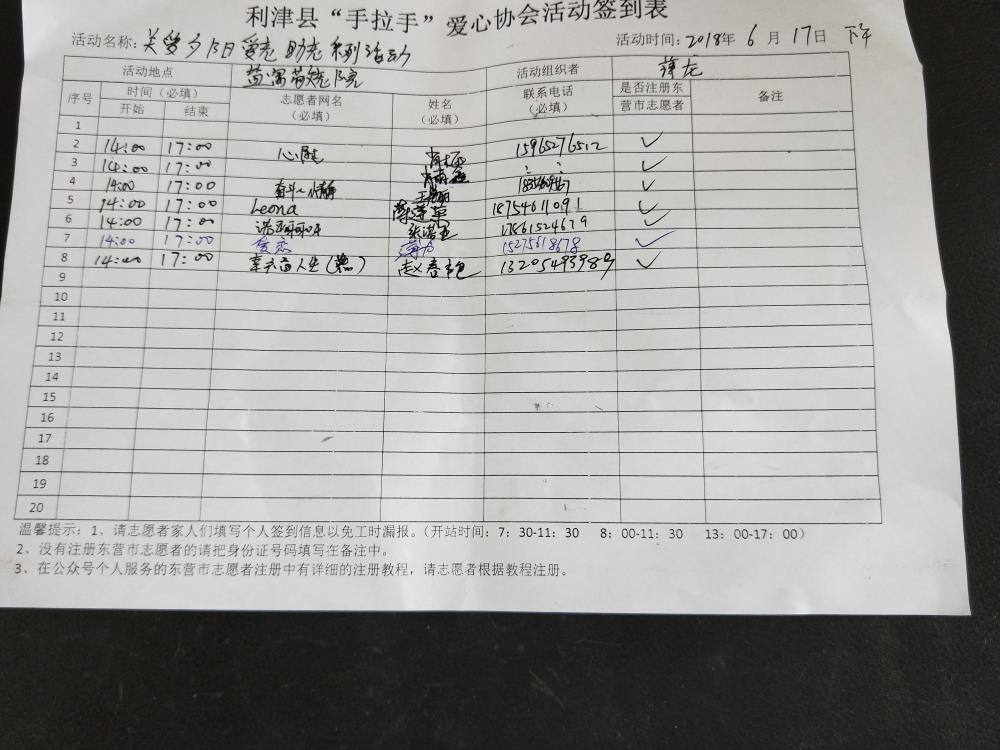 利津县“手拉手”爱心协会活动签到表
活动名称：关爱夕阳 爱老 助老 系列活动 活动时间：2018年 6 月 17日 下午
活动地点 活动组织者
序号 时间（必填） 志愿者网名（必填） 姓名（必填） 联系电话（必填） 是否注册东营市志愿者 备注
开始 结束
1
2 14:00 17:00 15965276512 ✓
3 14:00 17:00 ✓
4 14:00 17:00 ✓
5 14:00 17:00 Leona 18754611091 ✓
6 14:00 17:00 17561524679 ✓
7 14:00 17:00 15275618678 ✓
8 14:00 17:00 赵春艳 13205493989 ✓
9
10
11
12
13
14
15
16
17
18
19
20
温馨提示：1、请志愿者家人们填写个人签到信息以免工时漏报。（开站时间：7：30-11：30 8：00-11：30 13：00-17：00）
2、没有注册东营市志愿者的请把身份证号码填写在备注中。
3、在公众号个人服务的东营市志愿者注册中有详细的注册教程，请志愿者根据教程注册。